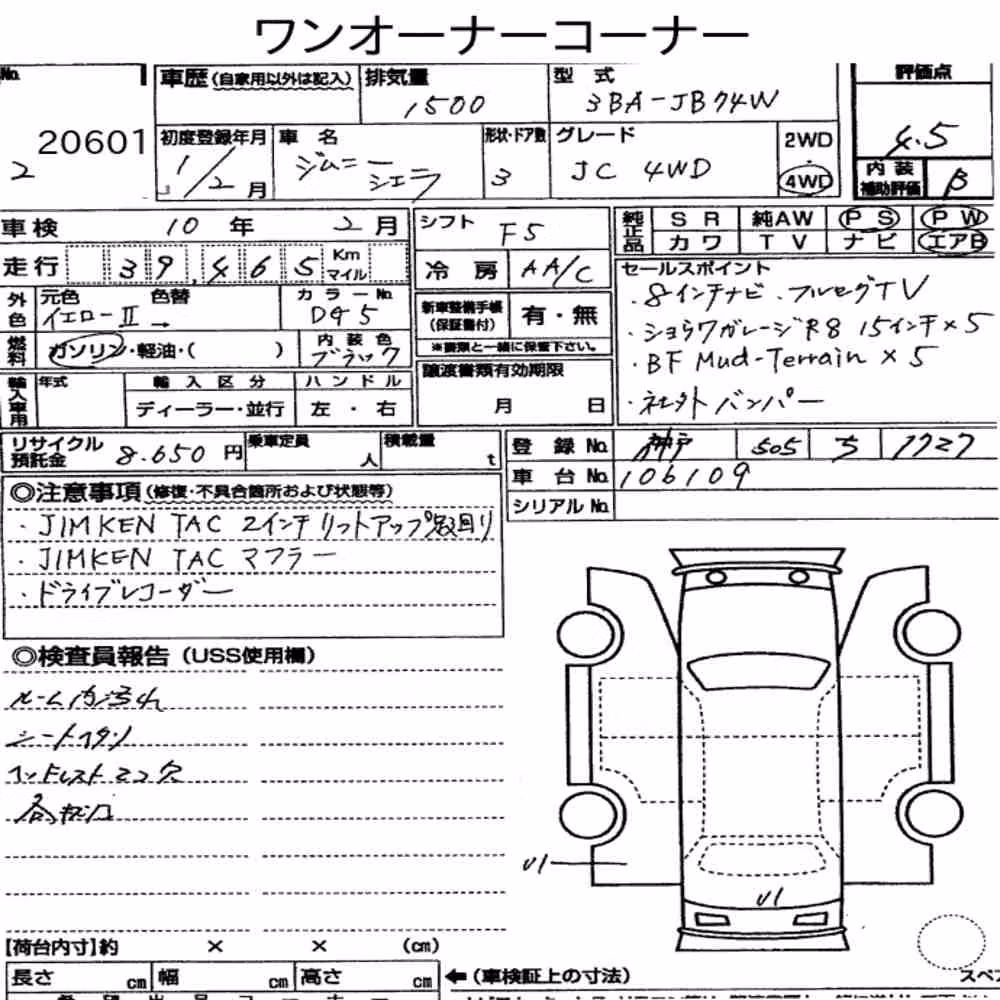 ワンオーナーコーナー
No.
20601
2
車歴(自家用以外は記入)
排気量
1500
型 式
3BA-JB74W
評価点
4.5
初度登録年月
1/2月
車 名
ジムニー
シエラ
形状・ドア数
3
グレード
JC 4WD
2WD
4WD
内装
補助評価
B
車検 10年 2月
シフト F5
純正品
SR 純AW PS PW
カワ TV ナビ エアB
走行 39,465 Km マイル
冷 房 AA/C
セールスポイント
・8インチナビ.フルセグTV
・ショウワガレージR8 15インチ×5
・BF Mud-Terrain × 5
・社外バンパー
外色
元色 色替
イエローII →
カラーNo.
D95
新車整備手帳
(保証書付)
有・無
※書類と一緒に保管下さい。
燃料
ガソリン・軽油・( )
内装色
ブラック
輸入車用
年式
輸入区分
ディーラー・並行
ハンドル
左・右
譲渡書類有効期限
月 日
リサイクル
預託金
8.650円
乗車定員
人
積載量
t
登録No. 神戸 505 ち 1727
車台No. 106109
シリアルNo.
◎注意事項(修復・不具合箇所および状態等)
・JIMKEN TAC 2インチリフトアップ足回り
・JIMKEN TAC マフラー
・ドライブレコーダー
◎検査員報告(USS使用欄)
ルーム内汚れ
シートヘタリ
穴
U1
U1
【荷台内寸】約 × × (cm)
長さ cm 幅 cm 高さ cm
←(車検証上の寸法)
スペ